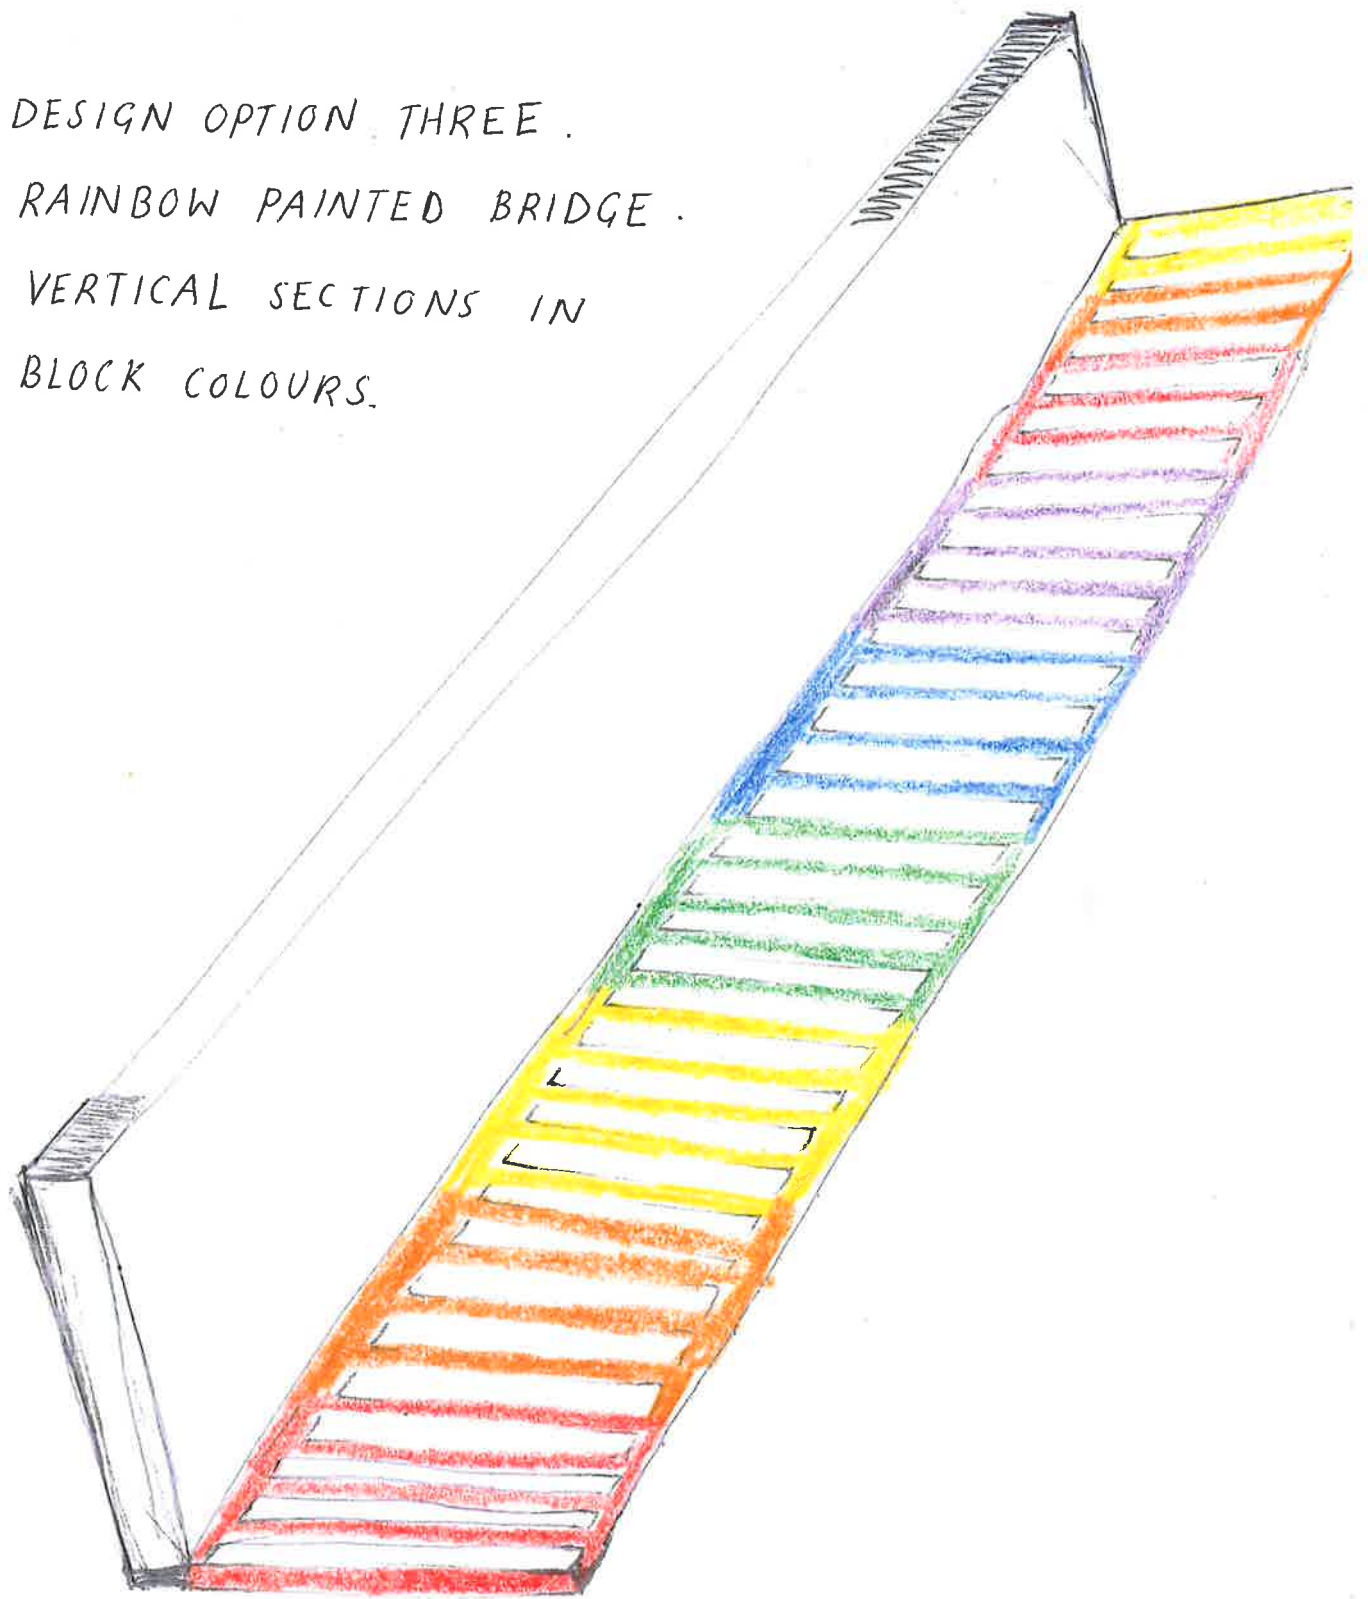 DESIGN OPTION THREE.
RAINBOW PAINTED BRIDGE.
VERTICAL SECTIONS IN
BLOCK COLOURS.